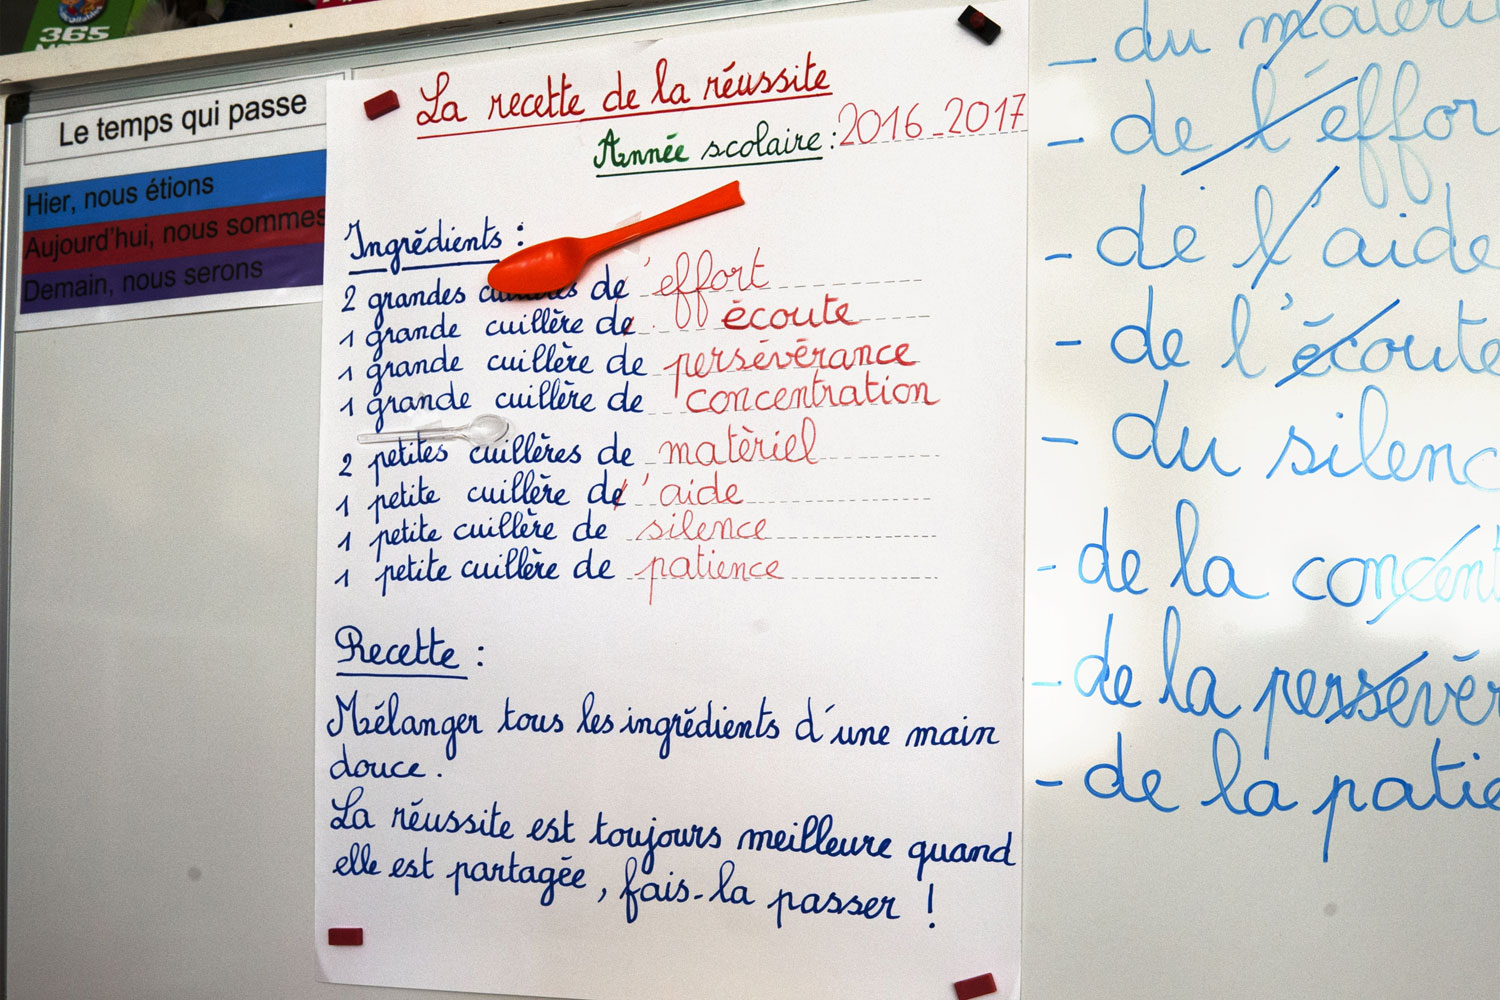 365
Le temps qui passe
Hier, nous étions
Aujourd'hui, nous sommes
Demain, nous serons
La recette de la réussite
Année scolaire : 2016-2017
Ingrédients :
2 grandes de l'effort
1 grande cuillère de écoute
1 grande cuillère de persévérance
1 grande cuillère de concentration
2 petites cuillères de matèriel
1 petite cuillère de l'aide
1 petite cuillère de silence
1 petite cuillère de patience
Recette :
Mélanger tous les ingrédients d'une main
douce.
La réussite est toujours meilleure quand
elle est partagée, fais-la passer !
- du matéri
- de l'effor
- de l'aide
- de l'écoute
- du silenc
- de la concent
- de la persévér
- de la patie